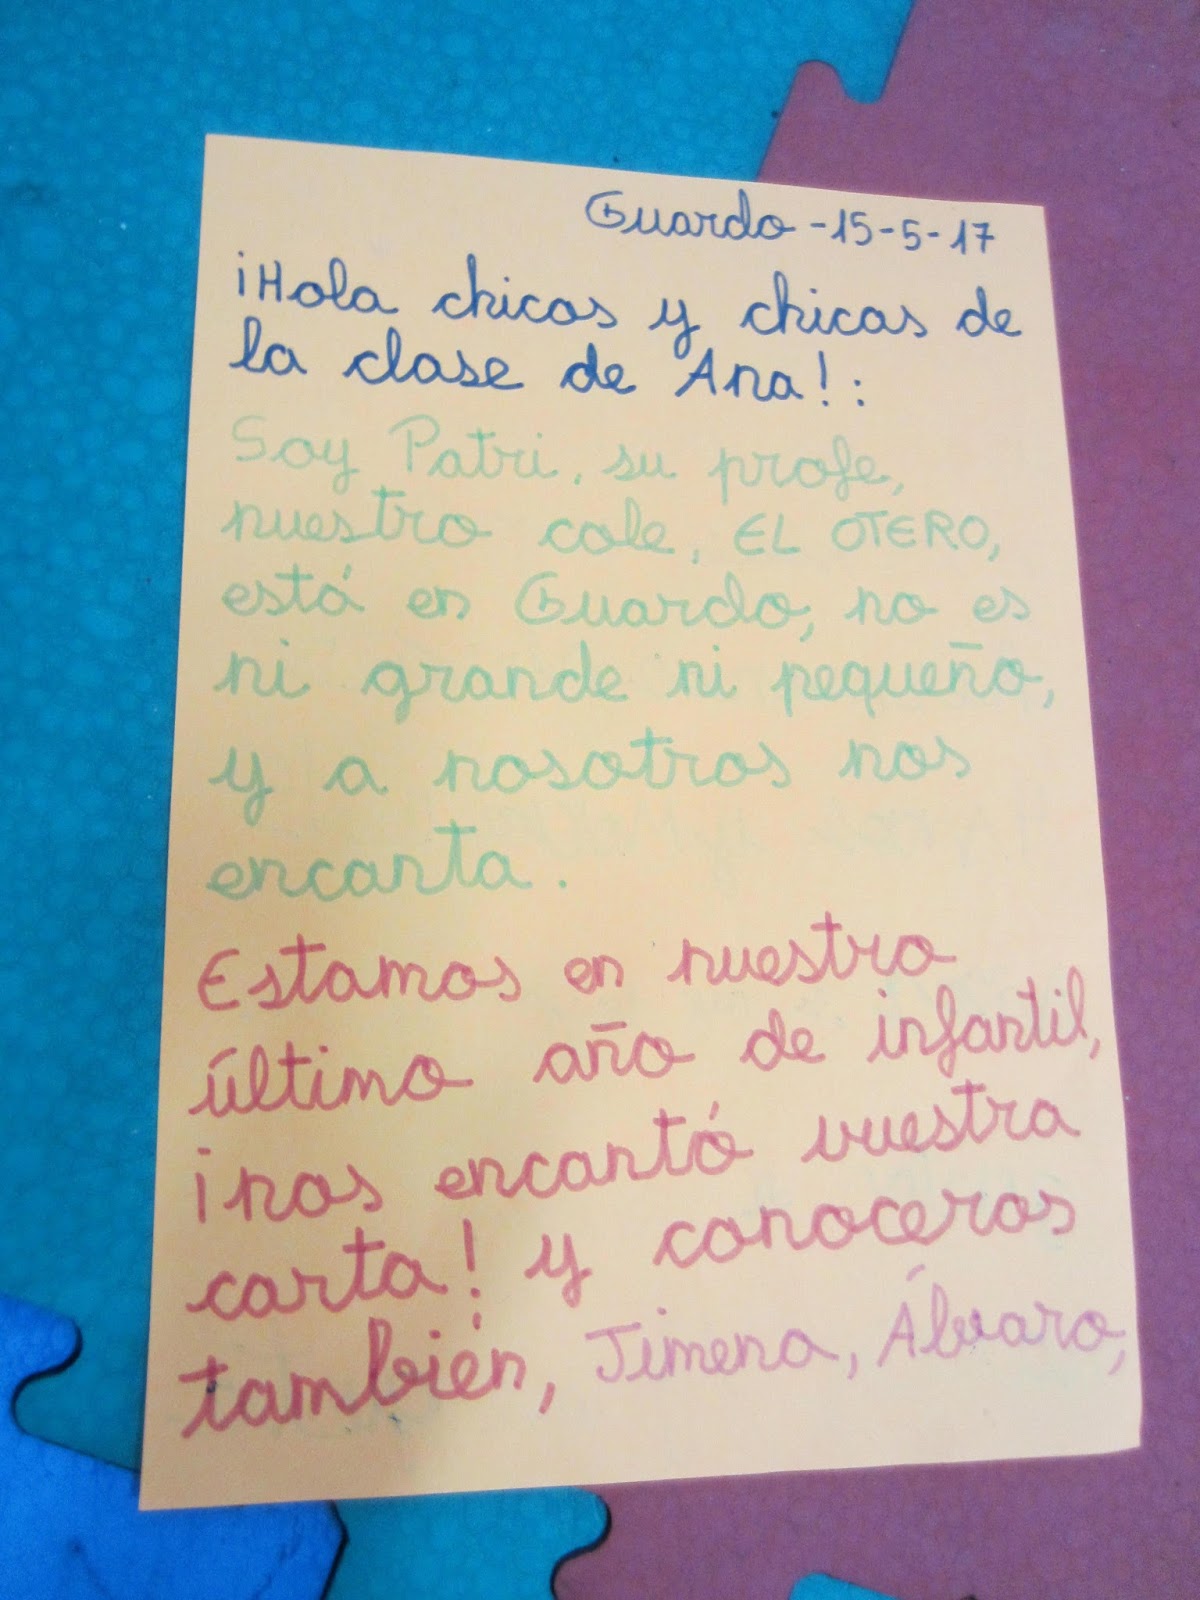 Guardo -15-5-17
¡Hola chicos y chicas de
la clase de Ana!:
Soy Patri, su profe,
nuestro cole, EL OTERO,
está en Guardo, no es
ni grande ni pequeño,
y a nosotros nos
encanta.
Estamos en nuestro
último año de infantil,
¡nos encantó vuestra
carta! y conoceros
también, Jimena, Álvaro,